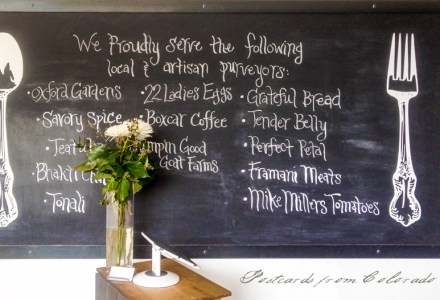 We Proudly serve the following
local & artisan purveyors:
•Oxford Gardens
•Savory Spice
•Tea
Bhakti Chai
Tonali
•22 Ladies Eggs
•Boxcar Coffee
mpin Good
Goat Farms
•Grateful Bread
•Tender Belly
•Perfect Petal
•Framani Meats
•Mike Millers Tomatoes
Postcards from Colorado